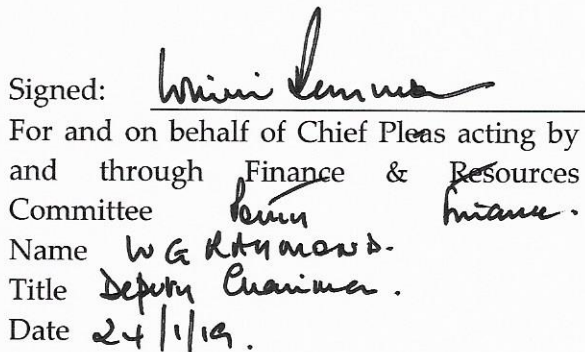 Signed:
For and on behalf of Chief Pleas acting by
and through Finance & Resources
Committee Finance.
Name W G RAYMOND.
Title Deputy Chairman.
Date 24/1/19.